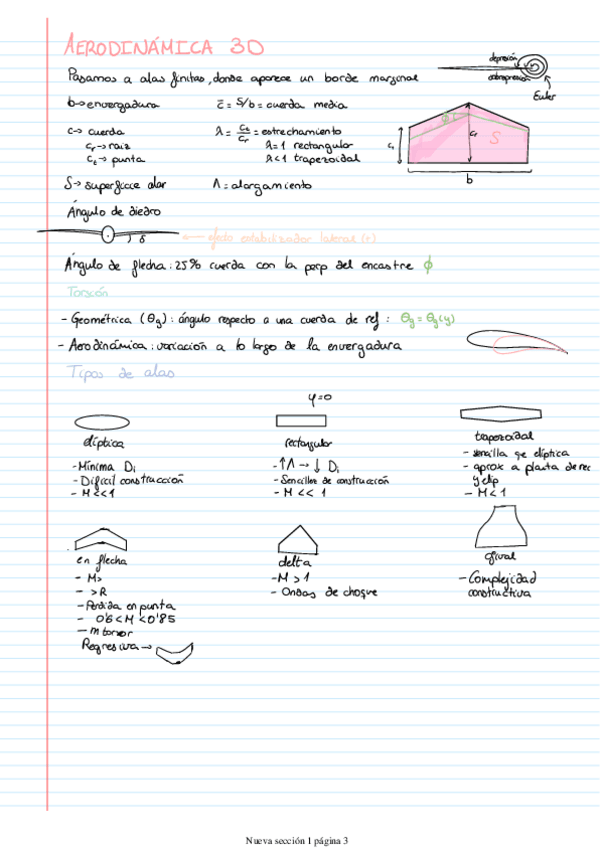 AERODINÁMICA 3D
Pasamos a alas finitas, donde aparece un borde marginal
depresión
sobrepresión
Euler
b → envergadura
c̄ = S/b = cuerda media
c → cuerda
λ = ct/cr = estrechamiento
cr → raíz
λ = 1 rectangular
ct → punta
λ < 1 trapezoidal
ct
cr
S
b
S → superficie alar
Λ = alargamiento
Ángulo de diedro
δ
← efecto estabilizador lateral (+)
Ángulo de flecha: 25% cuerda con la perp del encastre ϕ
Torsión
- Geométrica (θg): ángulo respecto a una cuerda de ref: θg = θg(y)
- Aerodinámica: variación a lo largo de la envergadura
Tipos de alas
φ=0
elíptica
- Mínima Di
- Difícil construcción
- M << 1
rectangular
- ↑Λ → ↓ Di
- Sencillez de construcción
- M << 1
trapezoidal
- sencilla qe elíptica
- aprox a planta de rec
y elip
- M < 1
en flecha
- M>
- >R
- Pérdida en punta
- 0'6 < M < 0'85
- m torsor
Regresiva →
delta
- M > 1
- Ondas de choque
ojival
- Complejidad
constructiva
Nueva sección 1 página 3